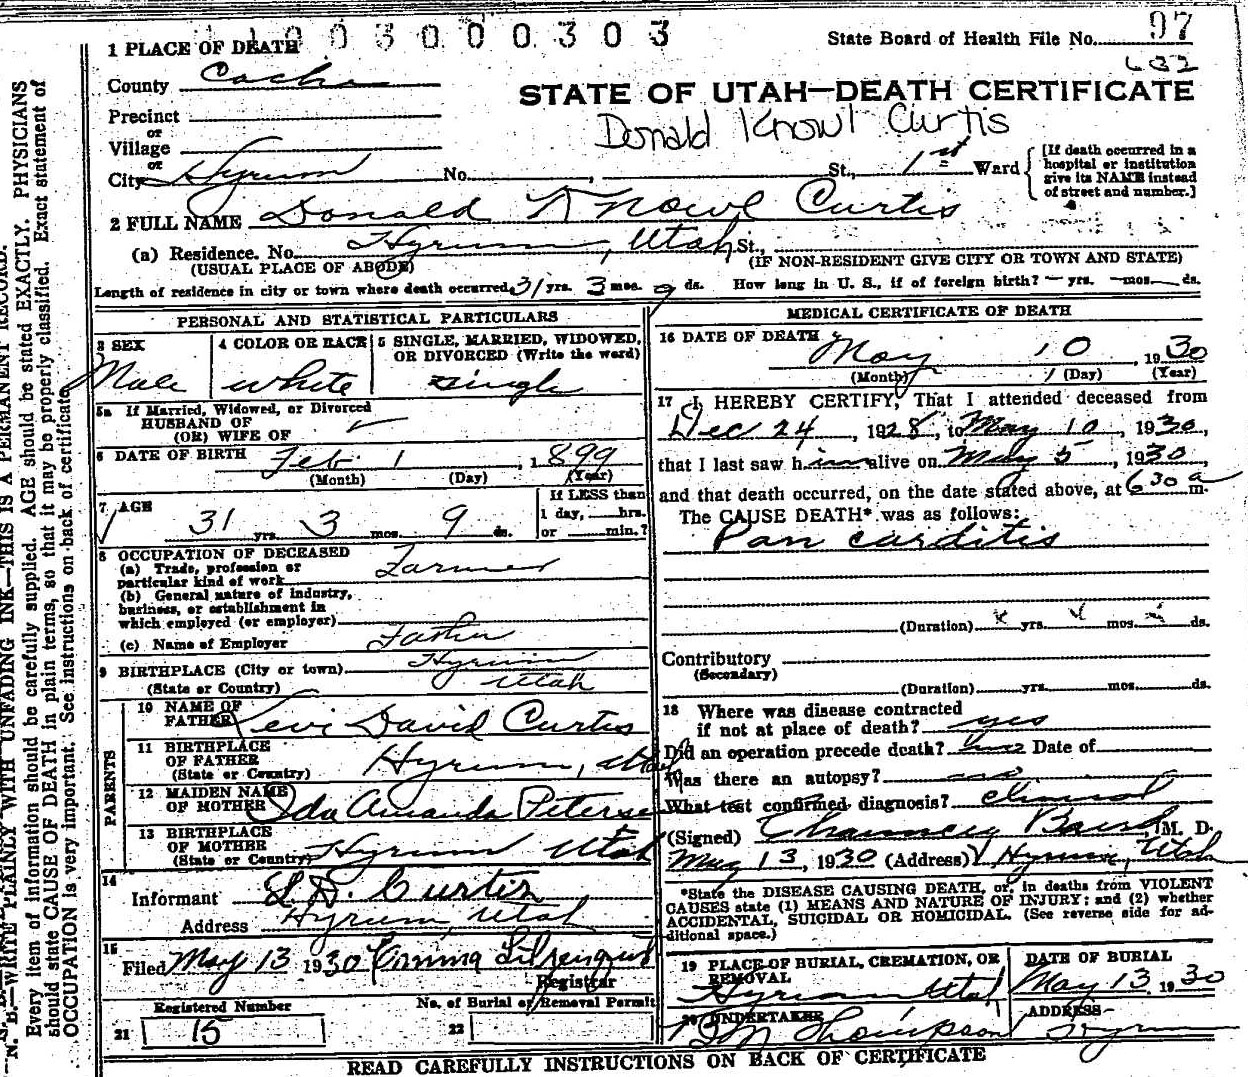 1 0 0 3 0 0 0 3 0 3
1 PLACE OF DEATH
State Board of Health File No. 97
632
County Cache
STATE OF UTAH—DEATH CERTIFICATE
Precinct
Donald Knowl Curtis
or
Village
or
City Hyrum No. , St., 1st Ward
[If death occurred in a
hospital or institution
give its NAME instead
of street and number.]
2 FULL NAME Donald Knowl Curtis
(a) Residence. No. Hyrum, Utah St.,
(USUAL PLACE OF ABODE) (IF NON-RESIDENT GIVE CITY OR TOWN AND STATE)
Length of residence in city or town where death occurred 31 yrs. 3 mos. 9 ds. How long in U. S., if of foreign birth? — yrs. — mos. — ds.
PERSONAL AND STATISTICAL PARTICULARS
3 SEX
Male
4 COLOR OR RACE
white
5 SINGLE, MARRIED, WIDOWED,
OR DIVORCED (Write the word)
single
5a If Married, Widowed, or Divorced
HUSBAND OF
(OR) WIFE OF
6 DATE OF BIRTH Feb. 1, 1899
(Month) (Day) (Year)
7 AGE
31 yrs. 3 mos. 9 ds.
If LESS than
1 day, hrs.
or min.?
8 OCCUPATION OF DECEASED
(a) Trade, profession or
particular kind of work Farmer
(b) General nature of industry,
business, or establishment in
which employed (or employer)
(c) Name of Employer Father
9 BIRTHPLACE (City or town) Hyrum
(State or Country) Utah
PARENTS
10 NAME OF
FATHER Levi David Curtis
11 BIRTHPLACE
OF FATHER Hyrum, Utah
(State or Country)
12 MAIDEN NAME
OF MOTHER Ida Amanda Petersen
13 BIRTHPLACE
OF MOTHER
(State or Country) Hyrum Utah
14
Informant L. D. Curtis
Address Hyrum, Utah
15
Filed May 13 1930 Emma
Registrar
Registered Number
21 15
No. of Burial or Removal Permit
22
MEDICAL CERTIFICATE OF DEATH
16 DATE OF DEATH
May 10, 1930
(Month) (Day) (Year)
17 I HEREBY CERTIFY, That I attended deceased from
Dec 24, 1928, to May 10, 1930,
that I last saw him alive on May 5, 1930,
and that death occurred, on the date stated above, at 630 a m.
The CAUSE DEATH* was as follows:
Pan carditis
(Duration) x yrs. x mos. x ds.
Contributory
(Secondary)
(Duration) yrs. mos. ds.
18 Where was disease contracted
if not at place of death? yes
Did an operation precede death? Date of
Was there an autopsy? no
What test confirmed diagnosis? clinical
(Signed) Chauncey, M. D.
May 13, 1930 (Address) Hyrum, Utah
*State the DISEASE CAUSING DEATH, or, in deaths from VIOLENT
CAUSES state (1) MEANS AND NATURE OF INJURY; and (2) whether
ACCIDENTAL, SUICIDAL OR HOMICIDAL. (See reverse side for ad-
ditional space.)
19 PLACE OF BURIAL, CREMATION, OR
REMOVAL
Hyrum Utah
DATE OF BURIAL
May 13, 1930
20 UNDERTAKER
Thompson
ADDRESS
Hyrum
READ CAREFULLY INSTRUCTIONS ON BACK OF CERTIFICATE
N. B.—WRITE PLAINLY WITH UNFADING INK—THIS IS A PERMANENT RECORD.
Every item of information should be carefully supplied. AGE should be stated EXACTLY. PHYSICIANS
should state CAUSE OF DEATH in plain terms, so that it may be properly classified. Exact statement of
OCCUPATION is very important. See instructions on back of certificate.